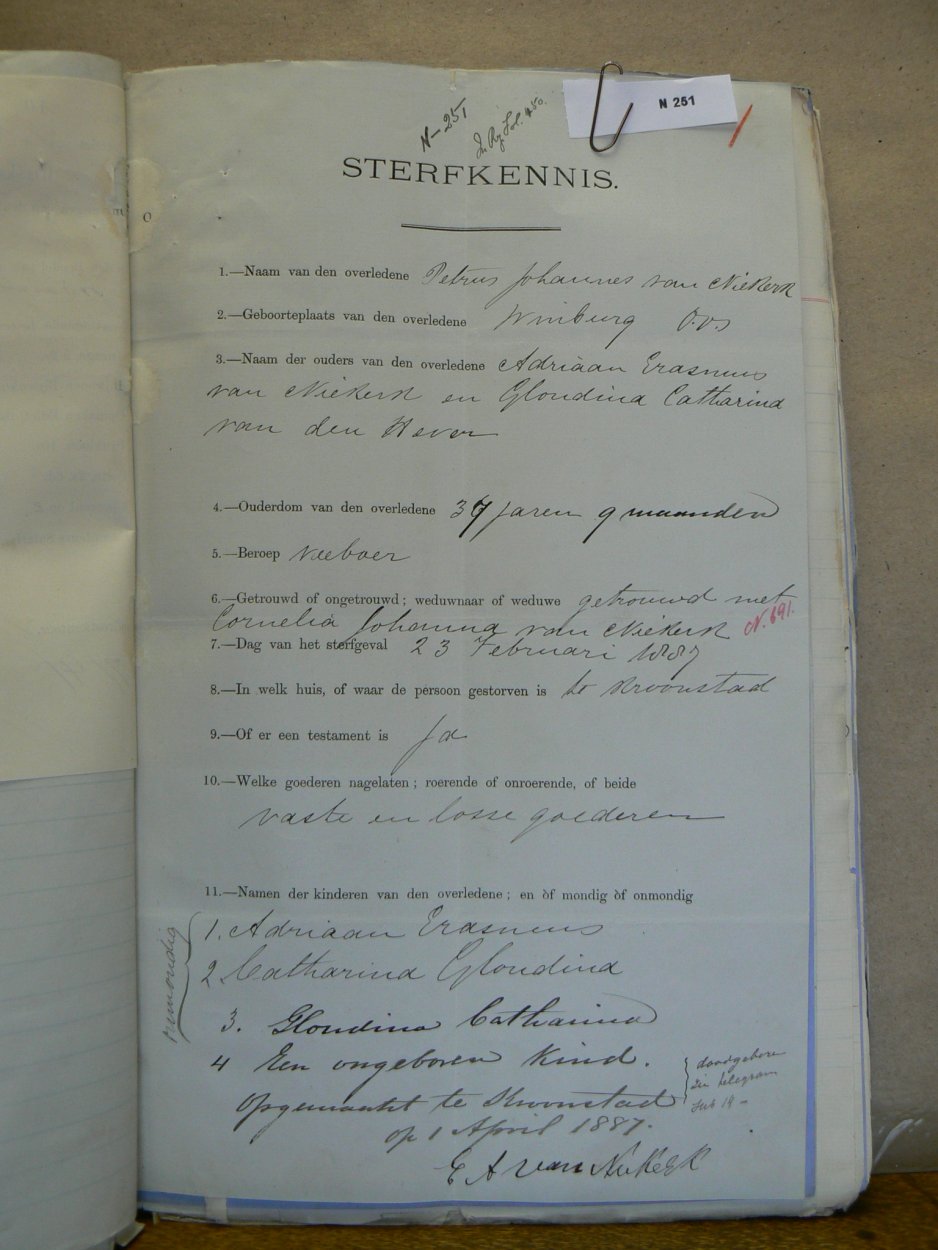 N 251
N-251
STERFKENNIS.
o
1.—Naam van den overledene Petrus Johannes van Niekerk
2.—Geboorteplaats van den overledene Winburg O.V.S
3.—Naam der ouders van den overledene Adriaan Erasmus
van Niekerk en Gloudina Catharina
van den Hever
4.—Ouderdom van den overledene 37 jaren 9 maanden
5.—Beroep Veeboer
6.—Getrouwd of ongetrouwd; weduwnaar of weduwe getrouwd met
Cornelia Johanna van Niekerk N. 691.
7.—Dag van het sterfgeval 23 Februari 1887
8.—In welk huis, of waar de persoon gestorven is te Kroonstad
9.—Of er een testament is Ja
10.—Welke goederen nagelaten; roerende of onroerende, of beide
vaste en losse goederen
11.—Namen der kinderen van den overledene; en òf mondig òf onmondig
onmondig
1. Adriaan Erasmus
2. Catharina Gloudina
3. Gloudina Catharina
4 Een ongeboren Kind.
doodgeboren
zie telegram
Opgemaakt te Kroonstad
op 1 April 1887.
E A van Niekerk